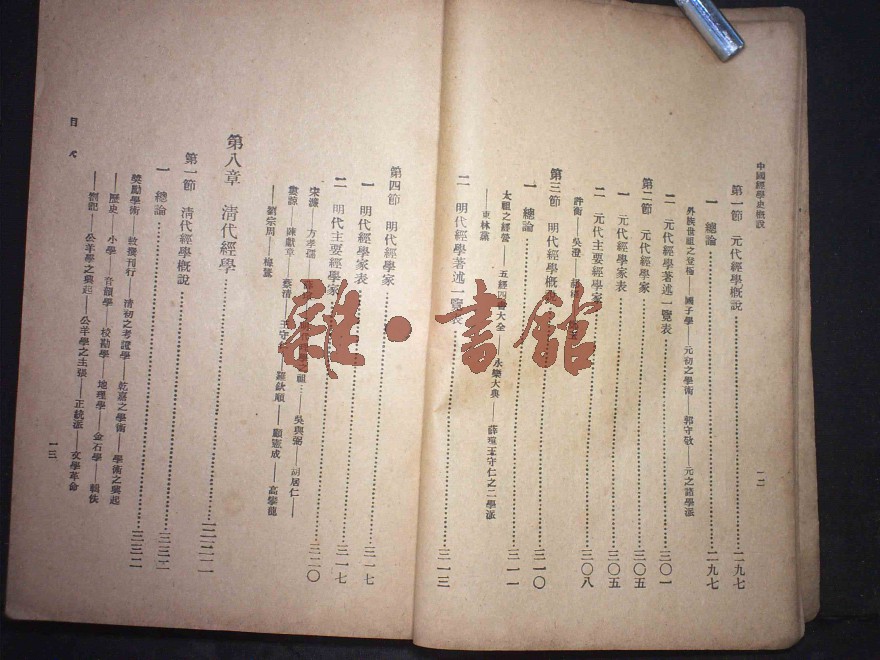 中國經學史概說
一二
第一節　元代經學概說……二九七
一　總論……二九七
外族世祖之登極——國子學——元初之學術——郭守敬——元之諸學派
二　元代經學著述一覽表……三〇一
第二節　元代經學家……三〇五
一　元代經學家表……三〇五
二　元代主要經學家……三〇八
許衡——吳澄
第三節　明代經學概說……三一〇
一　總論……三一一
太祖之經營——五經四書大全——永樂大典——薛瑄王守仁之二學派
——東林黨
二　明代經學著述一覽表……三一三
第四節　明代經學家
一　明代經學家表……三一七
二　明代主要經學家……三一七
宋濂——方孝孺 之祖……三二〇
吳與弼——胡居仁——
婁諒——陳獻章——蔡清——王守仁——羅欽順——顧憲成——高攀龍
——劉宗周——
第八章　清代經學
第一節　清代經學概說
一　總論……三三二
獎勵學術——敕撰刊行——清初之考證學——乾嘉之學術——學術之興起
——歷史——小學——音韻學——校勘學——地理學——金石學——輯佚
——公羊學之興起——公羊學之主張——正統派——文學革命
一三
雜·書館